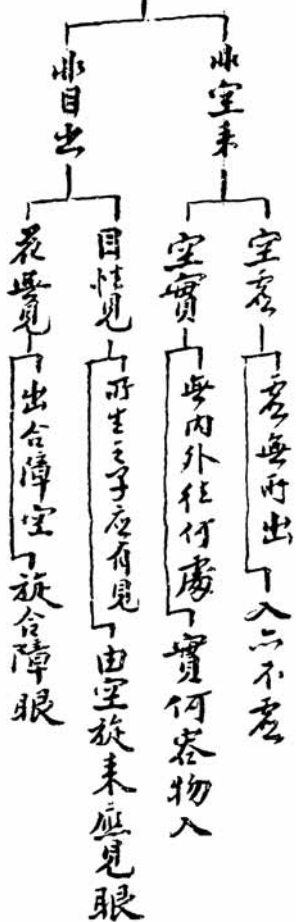 非空來
空虛
虛無所出
入亦不虛
空實
無內外往何處
實何容物入
非目出
目性見
所生之子應有見
由空旋來應見眼
花無見
出合障空
旋合障眼